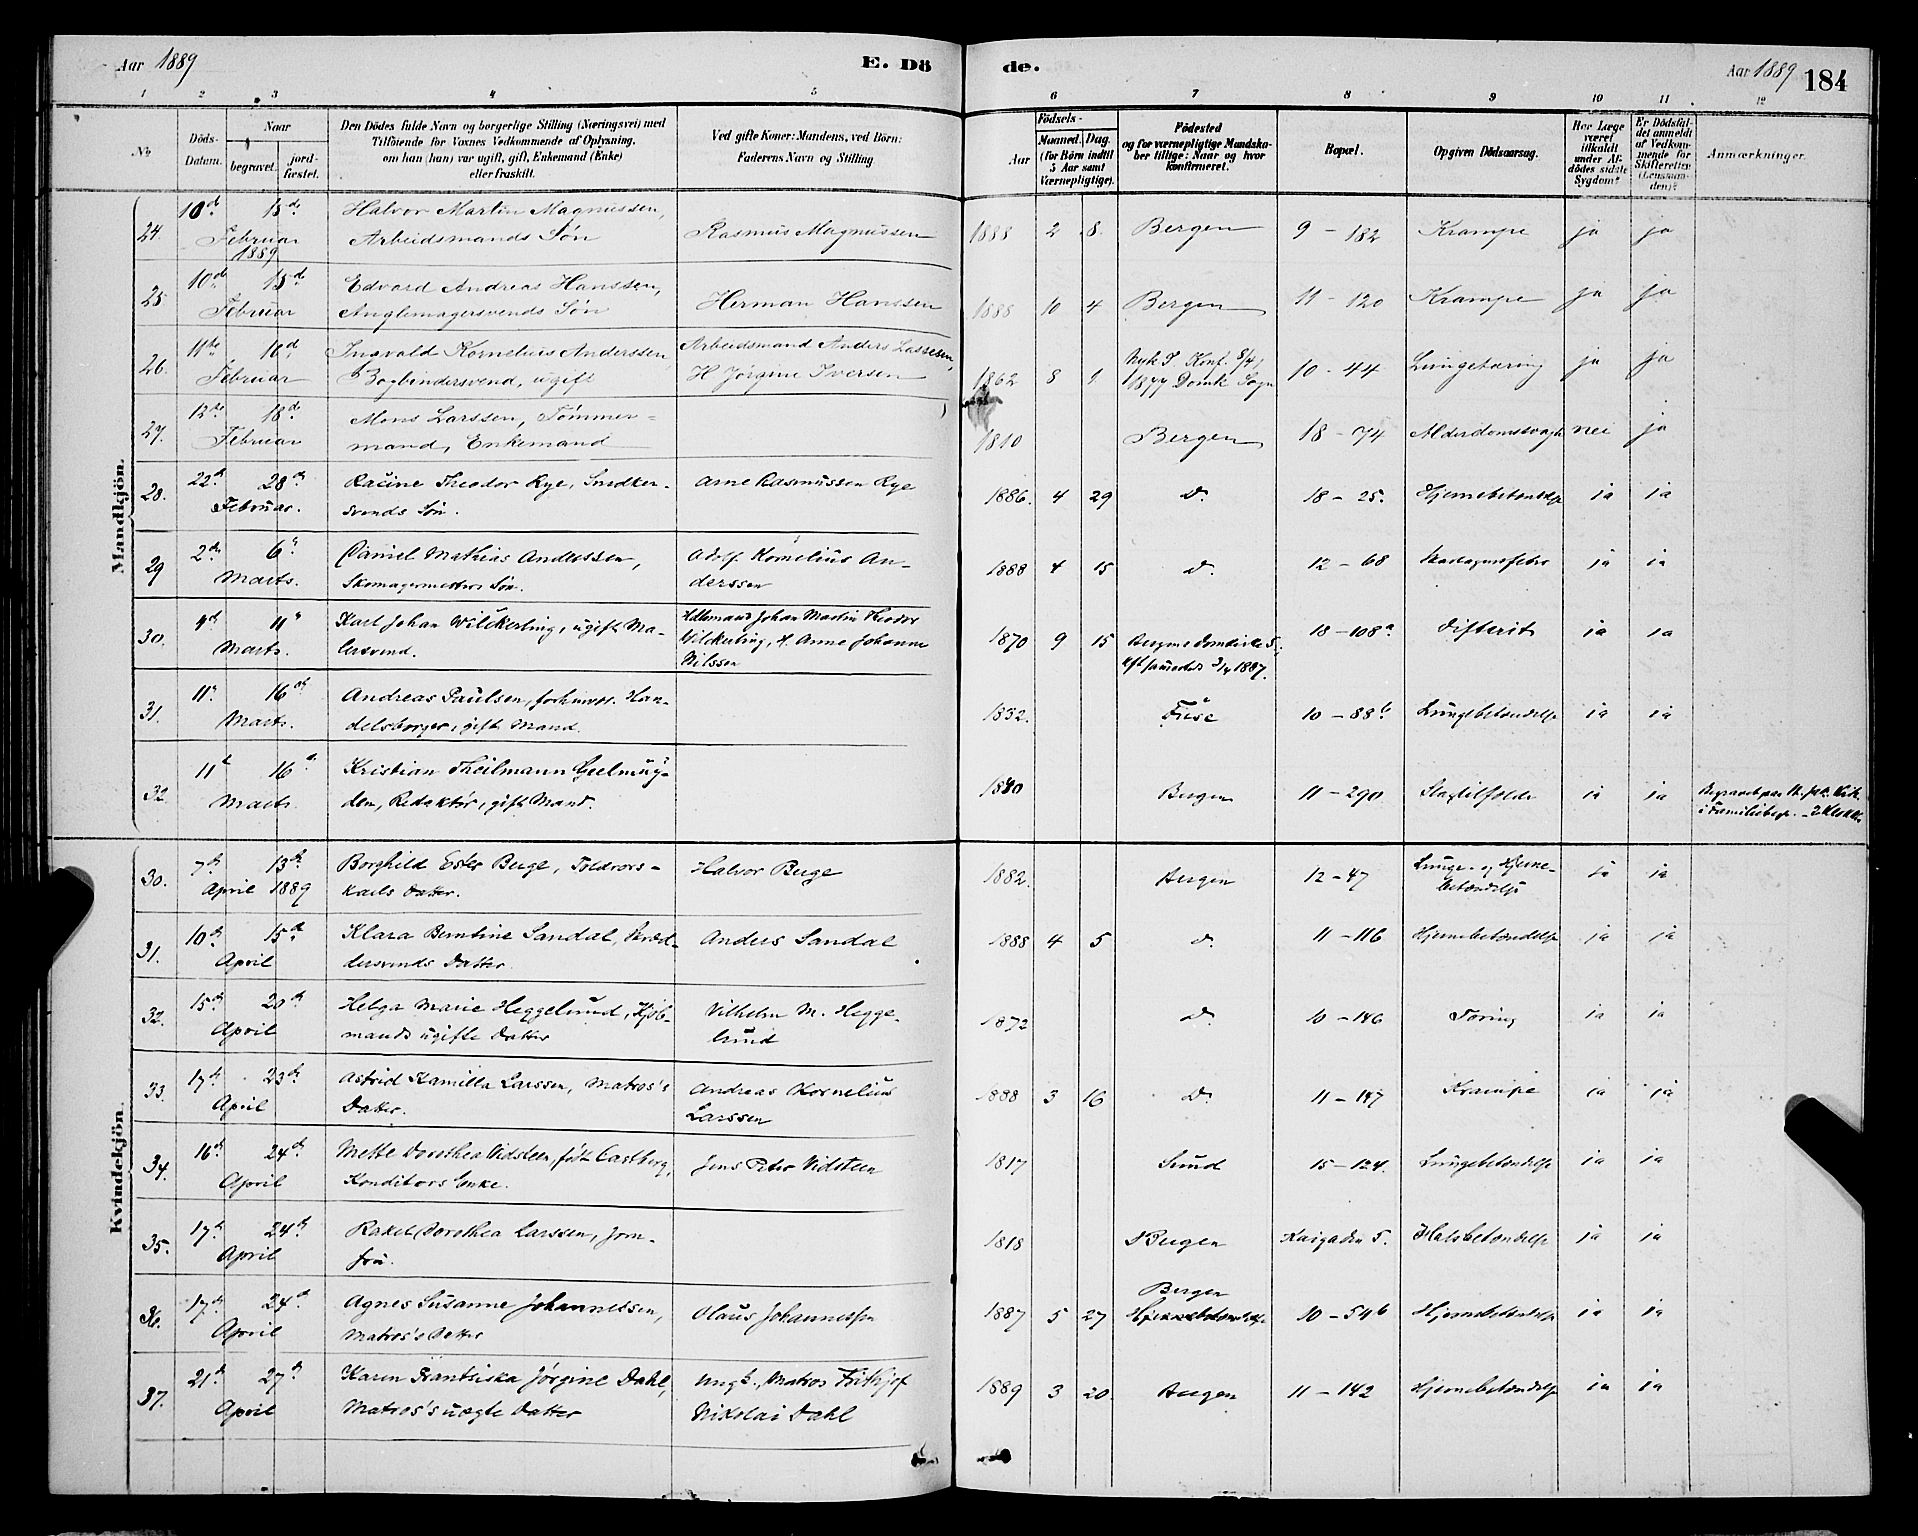 Aar 1889 E. Dö de. Aar 1889 184
1 2 3 4 5 6 7 8 9 10 11 12
No Döds-Datum. Naar begravet. jordfæstet. Den Dödes fulde Navn og borgerlige Stilling (Næringsvei) med Tilföiende for Voxnes Vedkommende af Oplysning, om han (hun) var ugift, gift, Enkemand (Enke) eller fraskilt. Ved gifte Koner: Mandens, ved Börn: Faderens Navn og Stilling Födsels- Aar Maaned. Dag. (for Börn indtil 5 Aar samt Værnepligtige). Födested og for værnepligtige Mandskaber tillige: Naar og hvor konfirmeret. Bopæl. Opgiven Dödsaarsag. Har Læge været tilkaldt under Afdödes sidste Sygdom? Er Dödsfaldet anmeldt af Vedkommende for Skifteretten (Lensmanden)? Anmærkninger.
Mandkjön.
24. 10de 15de Halvor Martin Magnussen,
Februar 1889 Arbeidsmands Søn Rasmus Magnussen 1888 2 8. Bergen 9 - 182 Krampe ja ja
25 10de 15de Edvard Andreas Hanssen,
Februar Anglemagersvends Søn Herman Hanssen 1888 10 4 Bergen 11 - 120 Krampe ja ja
26. 11te Ingvald Kornelius Anderssen, Arbeidsmand Anders Lassesen,
Februar Bogbindersvend, ugift H Jörgine Iversen 1862 8 Nyk S. Konf. 8/4 1877 Domk Sogn 10 - 44 Lungetæring ja ja
27. 12te 18de Mons Larssen, Tömmer-
Februar mand, Enkemand 1810 Bergen 18 - 74 Alderdomssvagh nei ja
28. 22de 28de Theodor Rye, Snedker- Arne Rasmussen Rye 1886. 4 29 Do. 18 - 25. Hjernebetændelse ja ja
Februar. svends Søn.
29 2den 6te Daniel Mathias Anderssen, Adolf Kornelius An-
Marts. Skomagermesters Søn. derssen 1888 4 15 Do. 12 - 68 Skarlagensfeber ja ja
30. 11te Karl Johan Wilckerling, ugift Ma- Johan Martin Theodor
Marts. lersvend. Wilckerling, H. Anne Johanne
Nilssen 1870 9 15 Bergens Domkirke S. 1887. 18 - 108a Difterit ja ja
31. 11te 16de Andreas Paulsen, forhenv. Han-
Marts. delsborger, gift Mand. 1832. Fuse 10 - 88b Lungebetændelse ja ja
32. 11te 16de Kristian Theilmann Geelmuy-
Marts. den, Redaktør, gift Mand. Bergen 11 - 290 Slagtilfælde ja ja
Kvindekjön
30. 7de 13de Borghild Ester Berge, Toldrors-
April 1889 karls Datter. Halvor Berge 1882. Bergen 12 - 47 Lunge- og Hjerne-
betændelse ja ja
31. 10de 15de Klara Berntine Sandal, Skræd-
April dersvends Datter. Anders Sandal 1888 4 5 Do. 11 - 116 Hjernebetændelse ja ja
32. 15de 20de Helga Marie Heggelund, Kjöb- Vilhelm M. Hegge-
April mands ugifte Datter lund 1872 Do. 10 - 146 Tæring ja ja
33. 17de 23de Astrid Kamilla Larssen, Matros's Andreas Kornelius
April Datter. Larssen 1888 3 16 Do. 11 - 147 Krampe ja ja
34. 16de 24de Mette Dorothea Vidsteen, født Castberg,
April Konditors Enke. Jens Peter Vidsteen 1817 Sund 15 - 124. Lungebetændelse ja ja
35. 17de 24de Rakel Dorothea Larssen, Jom-
April fru. 1818 Bergen Kaigaden 5. Halsbetændelse ja ja
36. 17de 24de Agnes Susanne Johannessen, Olaus Johannessen 1887 5 27 Bergen
April Matros's Datter Hjernebetændelse 10 - 54b Hjernebetændelse ja ja
37. 21de 27de Karen Frantsiska Jørgine Dahl, Ungk., Matros Frithjof
April Matros's uægte Datter Nikolai Dahl 1889 3 20. Bergen 11 - 142 Hjernebetændelse ja ja